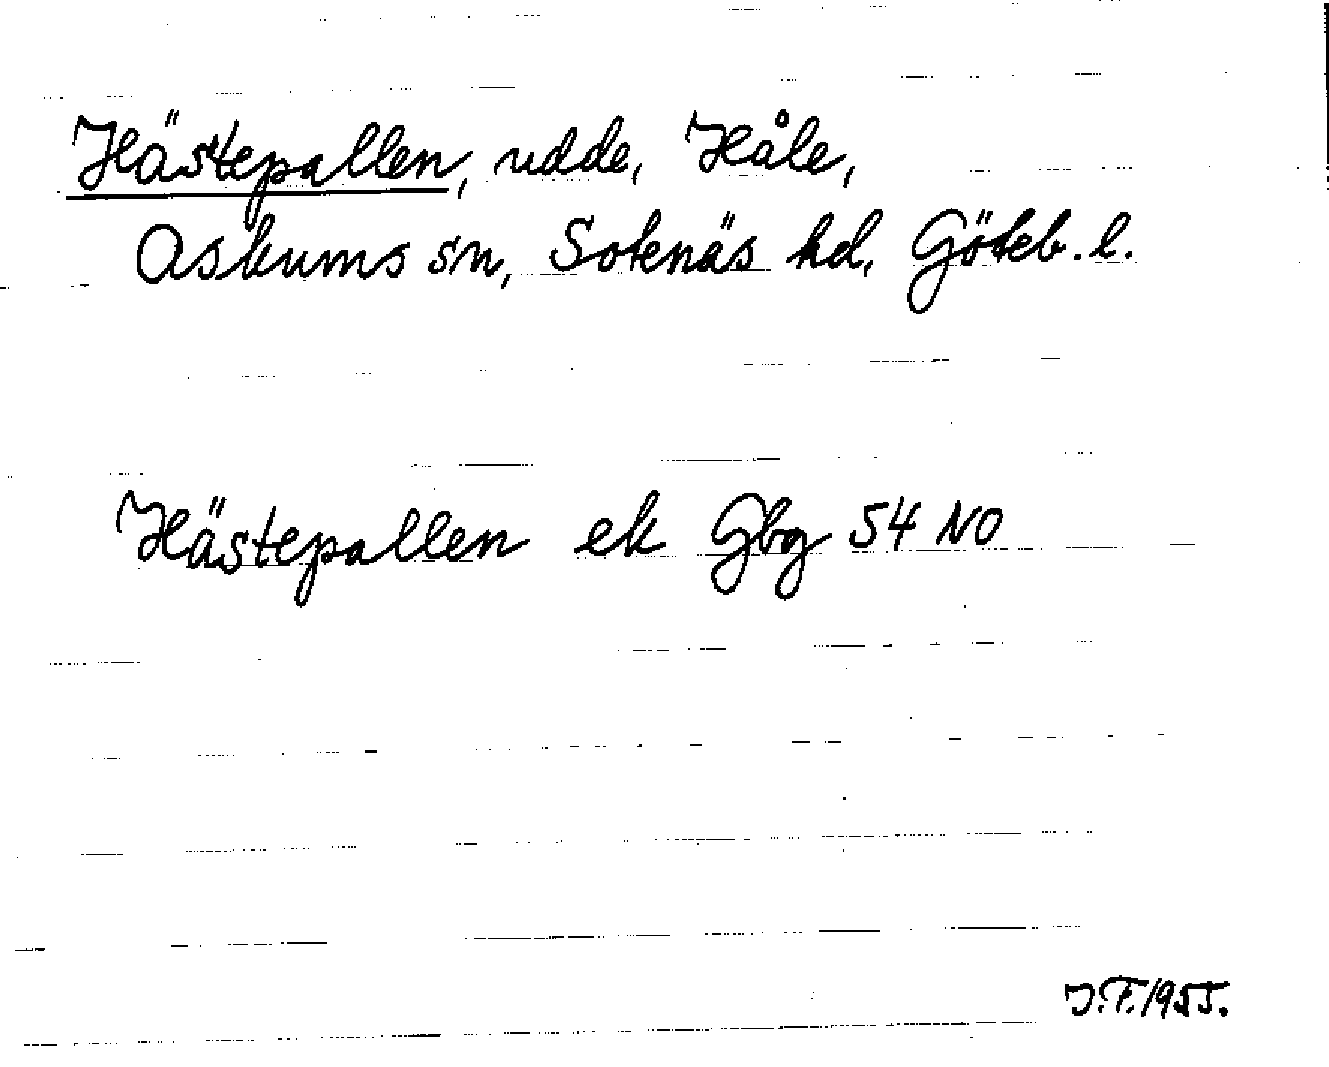 Hästepallen, udde, Håle,
Askums sn, Sotenäs hd, Göteb. l.
Hästepallen ek Gbg 54 NO
J.F. 1955.